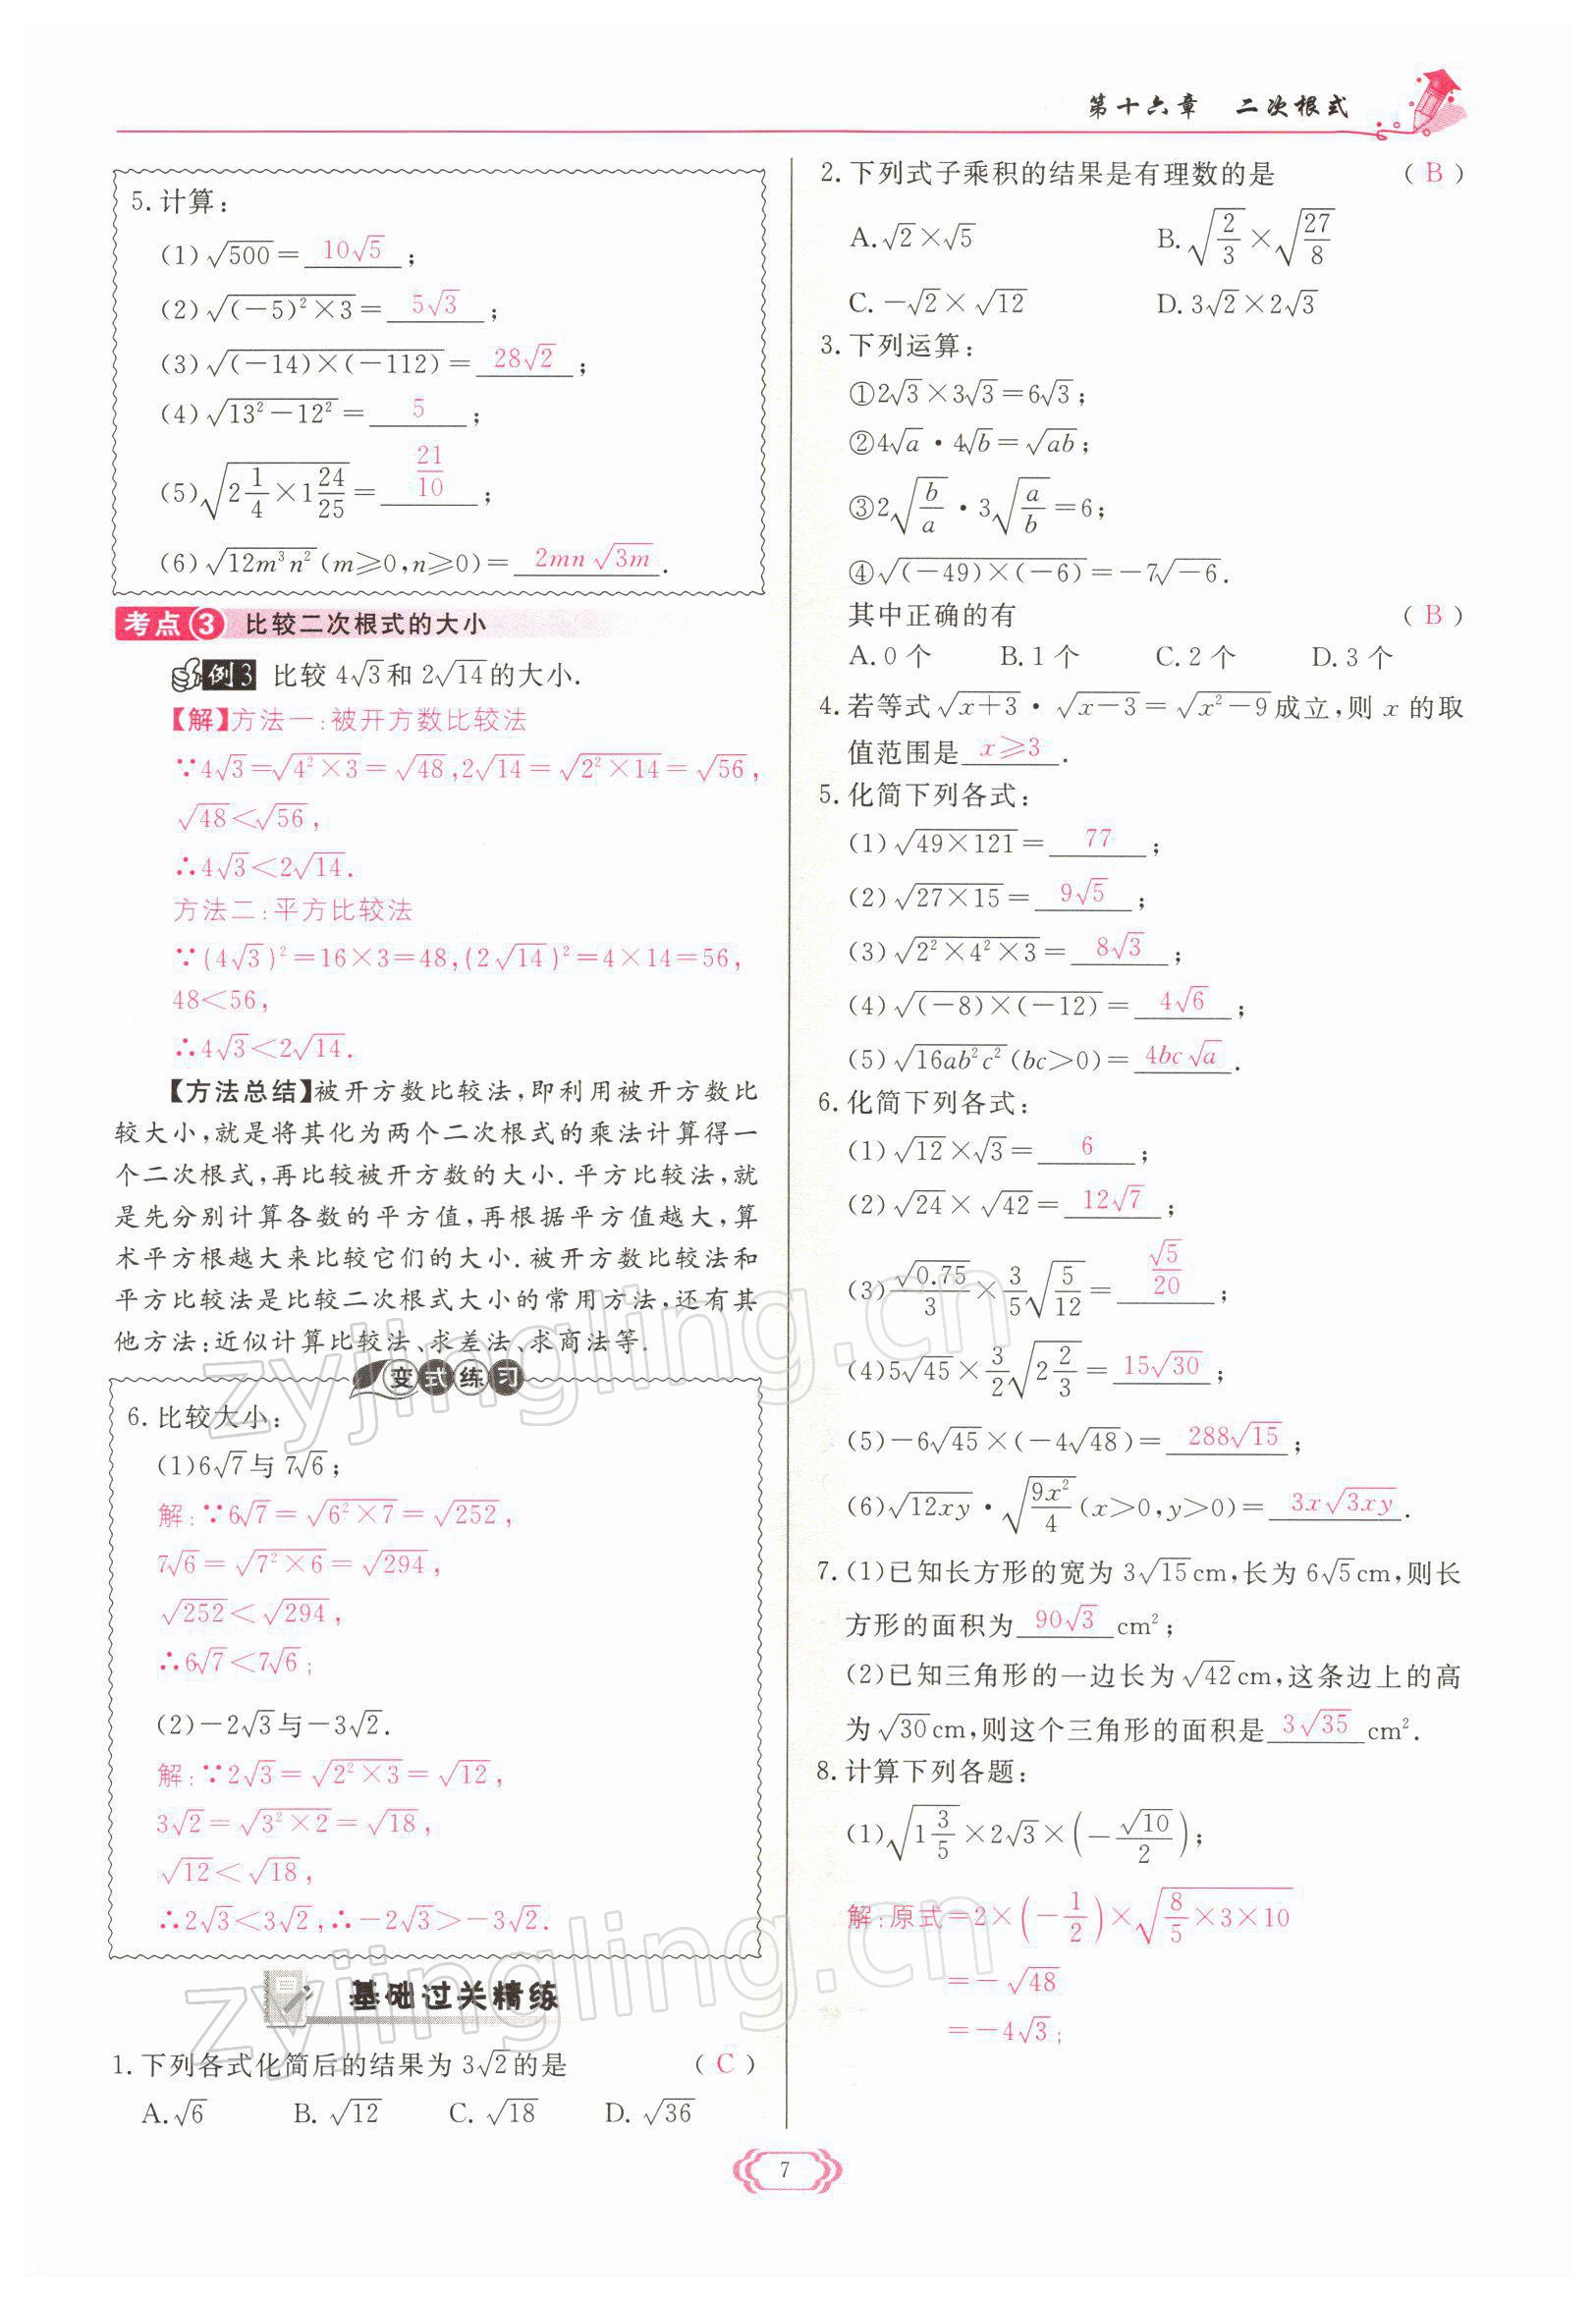 第十六章 二次根式
5. 计算:
(1)√500 = 10√5 ;
(2)√((-5)²×3) = 5√3 ;
(3)√((-14)×(-112)) = 28√2 ;
(4)√(13²-12²) = 5 ;
(5)√(2 1/4 ×1 24/25) = 21/10 ;
(6)√(12m³n²)(m≥0,n≥0)= 2mn√(3m) .
考点3 比较二次根式的大小
例3 比较 4√3和 2√14的大小.
【解】方法一:被开方数比较法
∵4√3=√(4²×3)=√48,2√14=√(2²×14)=√56,
√48<√56,
∴4√3<2√14.
方法二:平方比较法
∵(4√3)²=16×3=48,(2√14)²=4×14=56,
48<56,
∴4√3<2√14.
【方法总结】被开方数比较法,即利用被开方数比
较大小,就是将其化为两个二次根式的乘法计算得一
个二次根式,再比较被开方数的大小.平方比较法,就
是先分别计算各数的平方值,再根据平方值越大,算
术平方根越大来比较它们的大小.被开方数比较法和
平方比较法是比较二次根式大小的常用方法,还有其
他方法:近似计算比较法、求差法、求商法等.
变式练习
6. 比较大小:
(1)6√7与 7√6;
解:∵6√7=√(6²×7)=√252,
7√6=√(7²×6)=√294,
√252<√294,
∴6√7<7√6;
(2)-2√3与-3√2.
解:∵2√3=√(2²×3)=√12,
3√2=√(3²×2)=√18,
√12<√18,
∴2√3<3√2,∴-2√3>-3√2.
基础过关精练
1. 下列各式化简后的结果为 3√2的是 ( C )
A.√6 B. √12 C. √18 D. √36
2. 下列式子乘积的结果是有理数的是 ( B )
A.√2×√5 B.√(2/3)×√(27/8)
C.-√2×√12 D.3√2×2√3
3. 下列运算:
①2√3×3√3=6√3;
②4√a·4√b=√(ab);
③2√(b/a)·3√(a/b)=6;
④√((-49)×(-6))=-7√(-6).
其中正确的有 ( B )
A.0 个 B.1 个 C.2 个 D.3 个
4. 若等式√(x+3)·√(x-3)=√(x²-9)成立,则 x 的取
值范围是 x≥3 .
5. 化简下列各式:
(1)√(49×121)= 77 ;
(2)√(27×15)= 9√5 ;
(3)√(2²×4²×3)= 8√3 ;
(4)√((-8)×(-12))= 4√6 ;
(5)√(16ab²c²)(bc>0)= 4bc√a .
6. 化简下列各式:
(1)√12×√3= 6 ;
(2)√24×√42= 12√7 ;
(3)√0.75/3 × 3/5√(5/12)= √5/20 ;
(4)5√45×3/2√(2 2/3)= 15√30 ;
(5)-6√45×(-4√48)= 288√15 ;
(6)√(12xy)·√(9x²/4)(x>0,y>0)= 3x√(3xy) .
7. (1)已知长方形的宽为 3√15cm,长为 6√5cm,则长
方形的面积为 90√3 cm²;
(2)已知三角形的一边长为√42cm,这条边上的高
为√30cm,则这个三角形的面积是 3√35 cm².
8. 计算下列各题:
(1)√(1 3/5)×2√3×(-√10/2);
解:原式=2×(-1/2)×√(8/5×3×10)
=-√48
=-4√3;
7
zyjingling.cn
zyjingling.cn